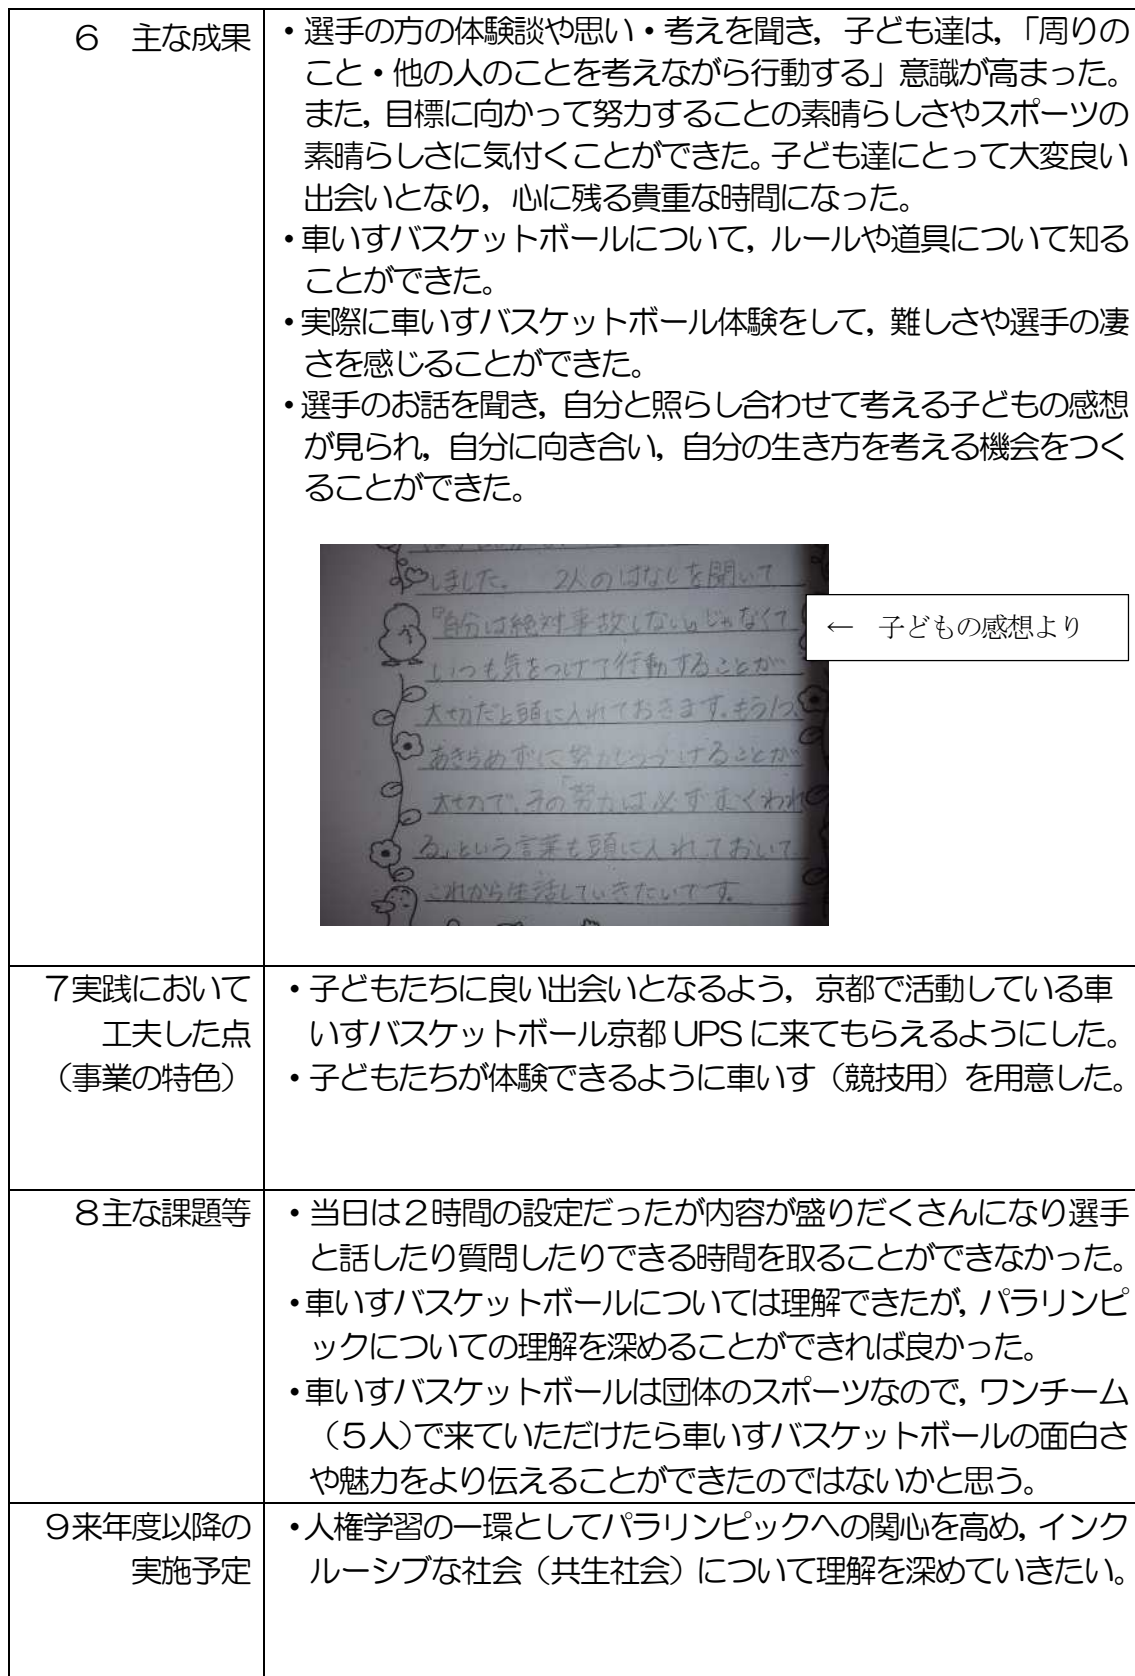 ６　主な成果
・選手の方の体験談や思い・考えを聞き，子ども達は，「周りの
こと・他の人のことを考えながら行動する」意識が高まった。
また，目標に向かって努力することの素晴らしさやスポーツの
素晴らしさに気付くことができた。子ども達にとって大変良い
出会いとなり，心に残る貴重な時間になった。
・車いすバスケットボールについて，ルールや道具について知る
ことができた。
・実際に車いすバスケットボール体験をして，難しさや選手の凄
さを感じることができた。
・選手のお話を聞き，自分と照らし合わせて考える子どもの感想
が見られ，自分に向き合い，自分の生き方を考える機会をつく
ることができた。
しました。　2人のはなしを聞いて
『自分は絶対事故しない。』じゃなくて
いつも気をつけて行動することが
大切だと頭に入れておきます。もう1つ、
あきらめずに努力しつづけることが
大切で、その「努力は必ずむくわれ
る」という言葉も頭に入れておいて
これから生活していきたいです。
←　子どもの感想より
７実践において
工夫した点
（事業の特色）
・子どもたちに良い出会いとなるよう，京都で活動している車
いすバスケットボール京都 UPS に来てもらえるようにした。
・子どもたちが体験できるように車いす（競技用）を用意した。
８主な課題等
・当日は２時間の設定だったが内容が盛りだくさんになり選手
と話したり質問したりできる時間を取ることができなかった。
・車いすバスケットボールについては理解できたが，パラリンピ
ックについての理解を深めることができれば良かった。
・車いすバスケットボールは団体のスポーツなので，ワンチーム
（５人）で来ていただけたら車いすバスケットボールの面白さ
や魅力をより伝えることができたのではないかと思う。
９来年度以降の
実施予定
・人権学習の一環としてパラリンピックへの関心を高め，インク
ルーシブな社会（共生社会）について理解を深めていきたい。